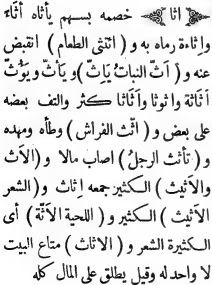 اثا خصمه بسهم يأثاه أثاء
واثاءة رماه به و ( اثتنى الطعام ) انقبض
عنه و ( أثّ النباتُ يَاثّ ) و يَأثّ و يَوُثّ
أثاثة واثوثا وآثاثا كثر والتف بعضه
على بعض و ( اثّث الفراش ) وطأه ومهده
و ( تأثث الرجل ) اصاب مالا و ( الاث
والأثيث ) الكثير جمعه إثاث و ( الشعر
الأثيث ) الكثير و ( اللحية الاثّة ) أى
الكثيرة الشعر و ( الاثاث ) متاع البيت
لا واحد له وقيل يطلق على المال كله